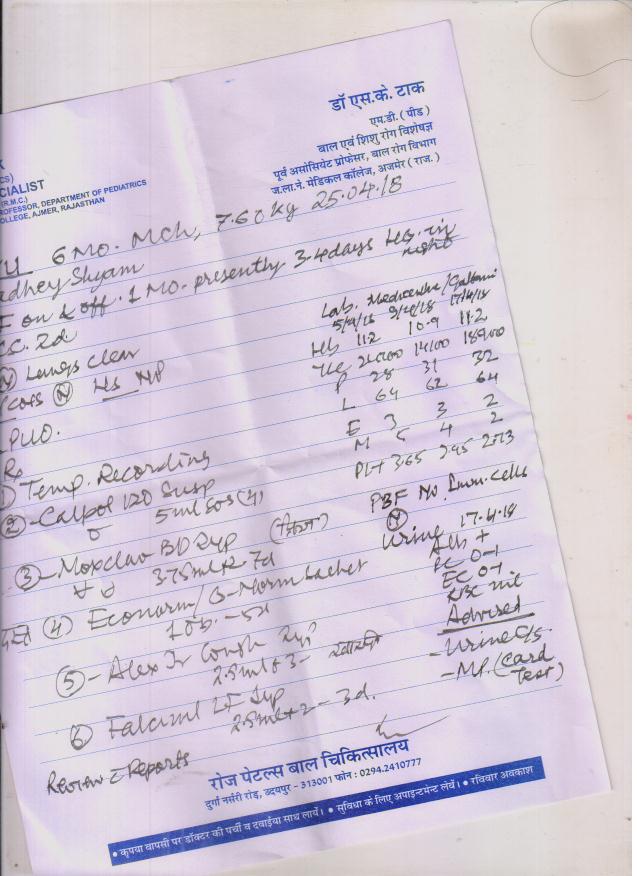 डॉ एस.के. टाक
एम.डी. ( पीड )
बाल एवं शिशु रोग विशेषज्ञ
पूर्व असोसियेट प्रोफेसर, बाल रोग विभाग
ज.ला.ने. मेडिकल कॉलेज, अजमेर (राज.)
CIALIST
(R.M.C.)
ROFESSOR, DEPARTMENT OF PEDIATRICS
OLLEGE, AJMER, RAJASTHAN
6 Mo. Mch, 7.60 kg 25.04.18
adhey Shyam
F on & off. 1 Mo. presently 3-4 days
night
Lungs clear
PUO.
Lab.
5/4/18 9/4/18 17/4/18
Hb 11.2 10.9 11.2
P 28 31 32
L 64 62 64
E 3 3 2
M 5 4 2
Plt 3.65 2.95 2.73
PBF No Imm. cells
R
① Temp. Recording
② - Calpol 120 Susp
5ml sos (4)
③ - Moxclav BD Syp
3.75ml x 2 7d
दस्त (4) Econorm / Sachet
⑤ - Alex Jr Cough Syp
2.5ml x 3 -
⑥ Syp
2.5ml x 2 - 3d.
Urine 17.4.18
Alb +
PC 0-1
EC 0-1
RBC nil
Advised
- Urine C/S
- MP. (Card
Test)
Review c Reports
रोज पेटल्स बाल चिकित्सालय
दुर्गा नर्सरी रोड़, उदयपुर - 313001 फोन : 0294.2410777
• कृपया वापसी पर डॉक्टर की पर्ची व दवाईया साथ लायें। • सुविधा के लिए अपाइन्टमेन्ट लेवें। • रविवार अवकाश